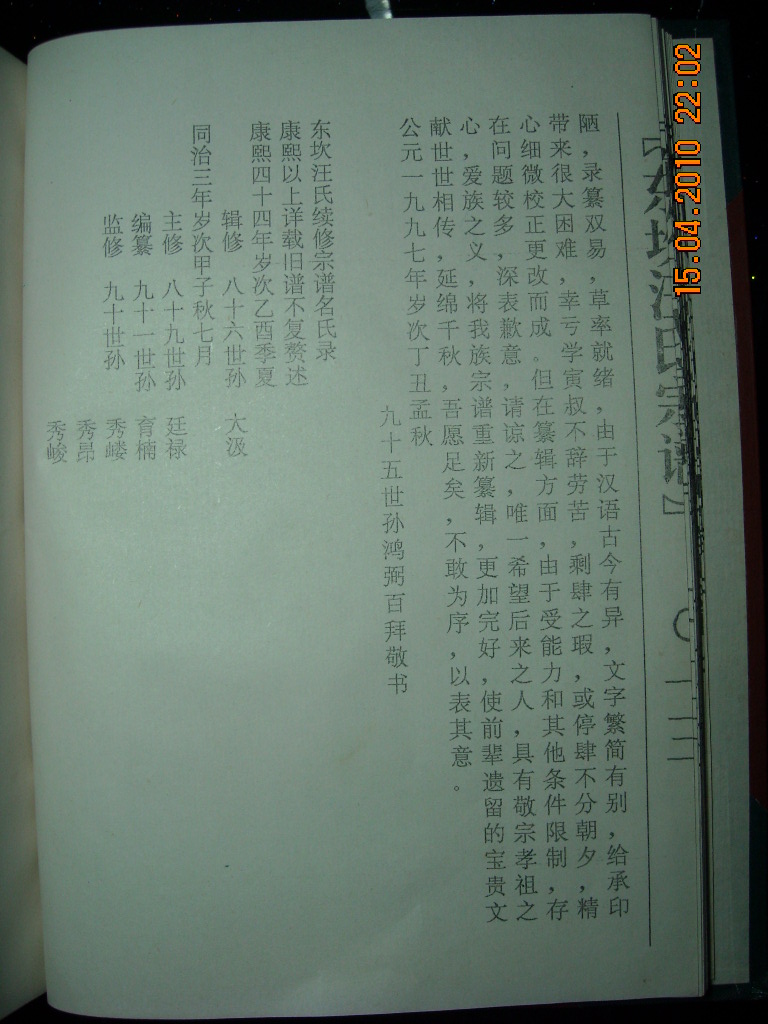 东坎汪氏宗谱
陋，录纂双易，草率就绪，由于汉语古今有异，文字繁简有别，给承印
带来很大困难，幸亏学寅叔不辞劳苦，剩肆之瑕，或停肆不分朝夕，精
心细微校正更改而成。但在纂辑方面，由于受能力和其他条件限制，存
在问题较多，深表歉意，请谅之，唯一希望后来之人，具有敬宗孝祖之
心，爱族之义，将我族宗谱重新纂辑，更加完好，使前辈遗留的宝贵文
献世世相传，延绵千秋，吾愿足矣，不敢为序，以表其意。
公元一九九七年岁次丁丑孟秋
九十五世孙鸿弼百拜敬书
东坎汪氏续修宗谱名氏录
康熙以上详载旧谱不复赘述
康熙四十四年岁次乙酉季夏
辑修 八十六世孙 大汲
同治三年岁次甲子秋七月
主修 八十九世孙 廷禄
编纂 九十一世孙 育楠
监修 九十世孙 秀嵝
秀昂
秀峻
15.04.2010 22:02